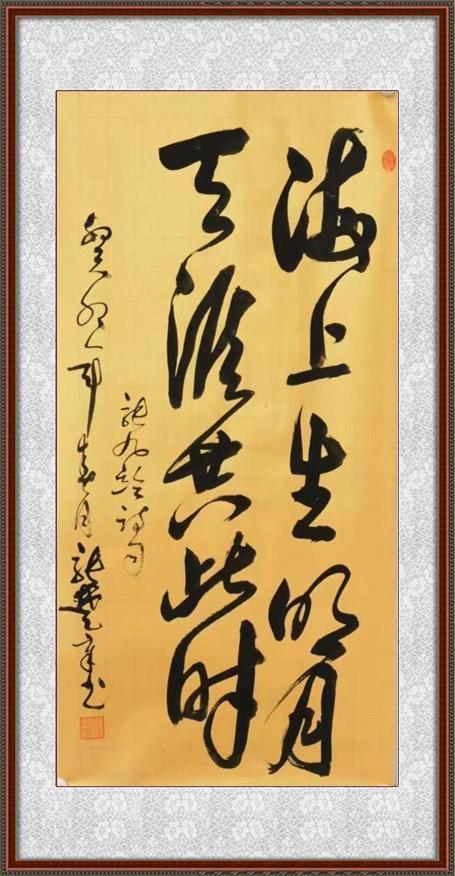 海上生明月
天涯共此时
张九龄诗句
癸卯年春月张楚章书